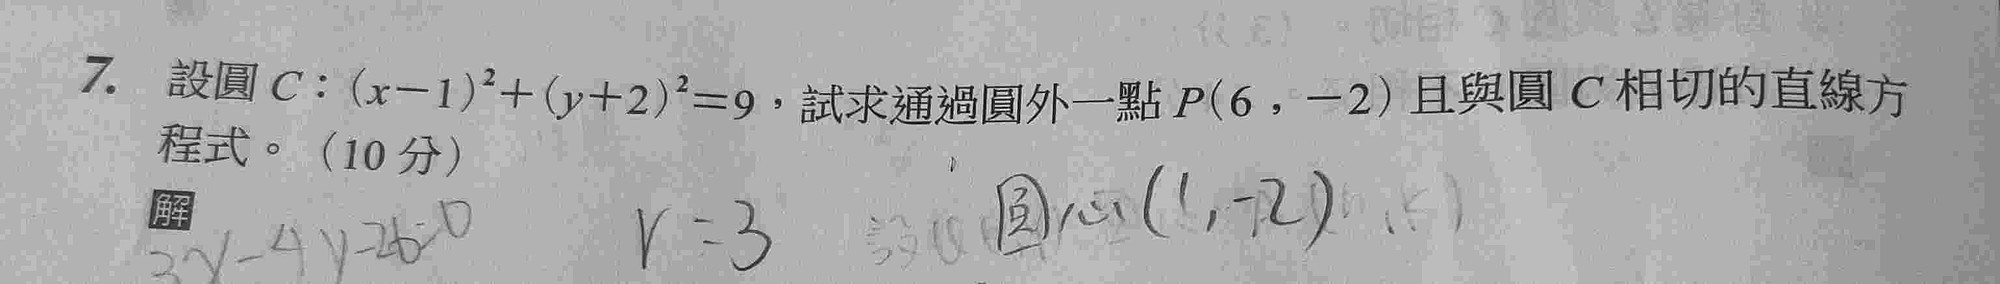 7. 設圓 C：(x−1)²+(y+2)²=9，試求通過圓外一點 P(6，−2) 且與圓 C 相切的直線方
程式。（10 分）
解
3x-4y-26=0 r=3 圓心(1,-2)